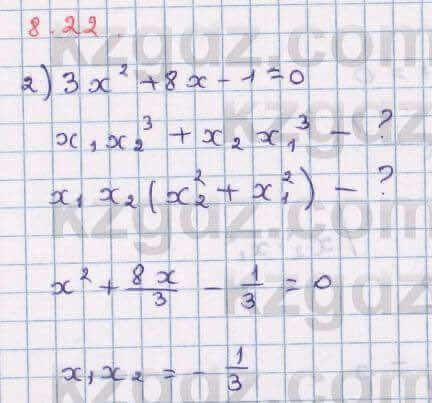 8.22.
2) 3x² + 8x - 1 = 0
x₁x₂³ + x₂x₁³ - ?
x₁x₂(x₂² + x₁²) - ?
x² + 8x/3 - 1/3 = 0
x₁x₂ = - 1/3